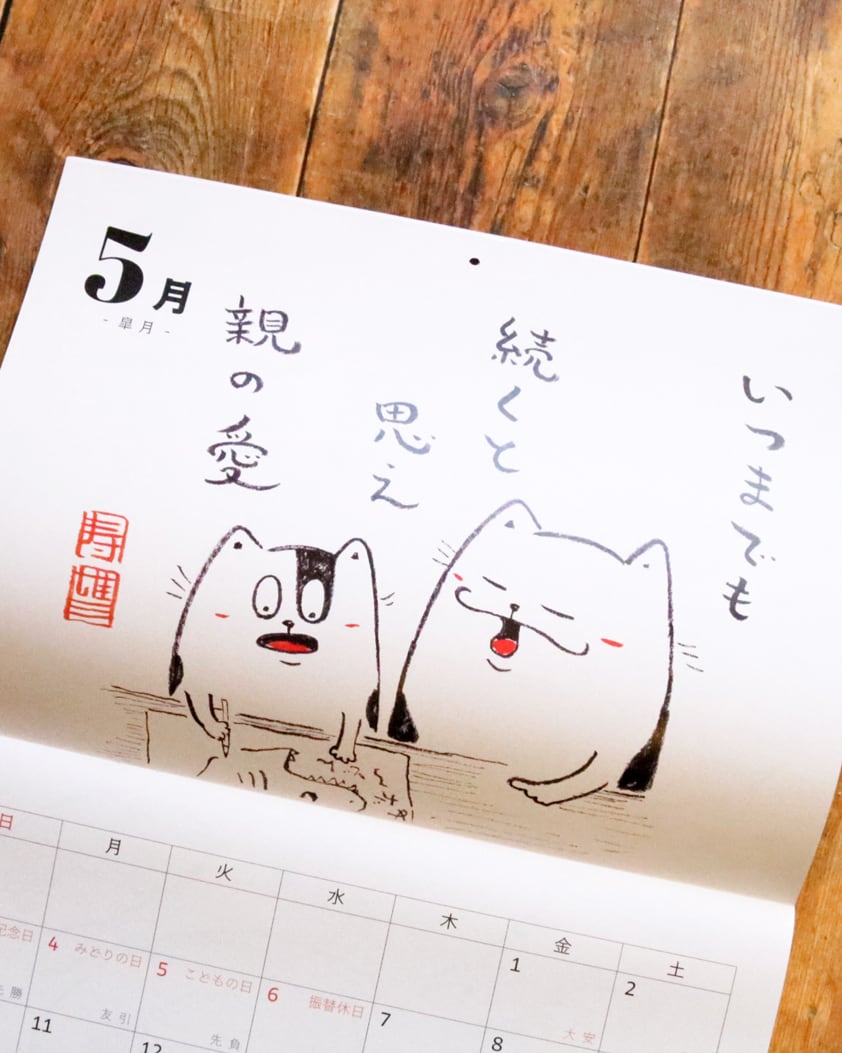 5月
- 皐月 -
いつまでも
続くと
思え
親の愛
日 月 火 水 木 金 土
1 2
大安
記念日 4 みどりの日 5 こどもの日 6 振替休日 7 8
先勝 友引 先負
11 12